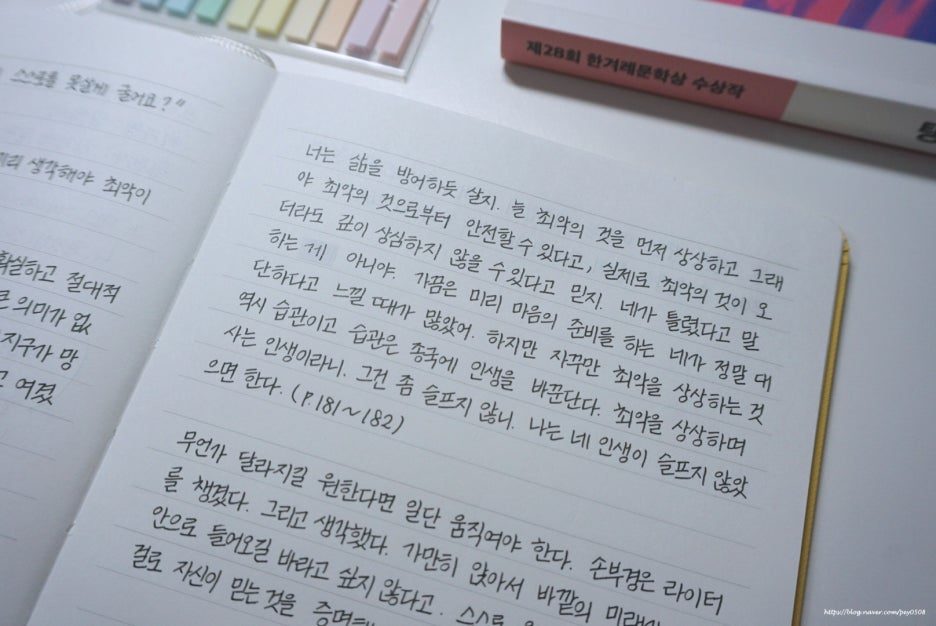 스스로를 못살게 굴어요?"
미리 생각해야 최악이
확실하고 절대적
의미가 없
지구가 망
여겼
제28회 한겨레문학상 수상작
탕
너는 삶을 방어하듯 살지. 늘 최악의 것을 먼저 상상하고 그래
야 최악의 것으로부터 안전할 수 있다고, 실제로 최악의 것이 오
더라도 깊이 상심하지 않을 수 있다고 믿지. 네가 틀렸다고 말
하는 게 아니야. 가끔은 미리 마음의 준비를 하는 네가 정말 대
단하다고 느낄 때가 많았어. 하지만 자꾸만 최악을 상상하는 것
역시 습관이고 습관은 종국에 인생을 바꾼단다. 최악을 상상하며
사는 인생이라니. 그건 좀 슬프지 않니. 나는 네 인생이 슬프지 않았
으면 한다. (P.181~182)
무언가 달라지길 원한다면 일단 움직여야 한다. 손부경은 라이터
를 챙겼다. 그리고 생각했다. 가만히 앉아서 바깥의 미래가
안으로 들어오길 바라고 싶지 않다고. 스스로
걸로 자신이 믿는 것을 증명
http://blog.naver.com/pey0508